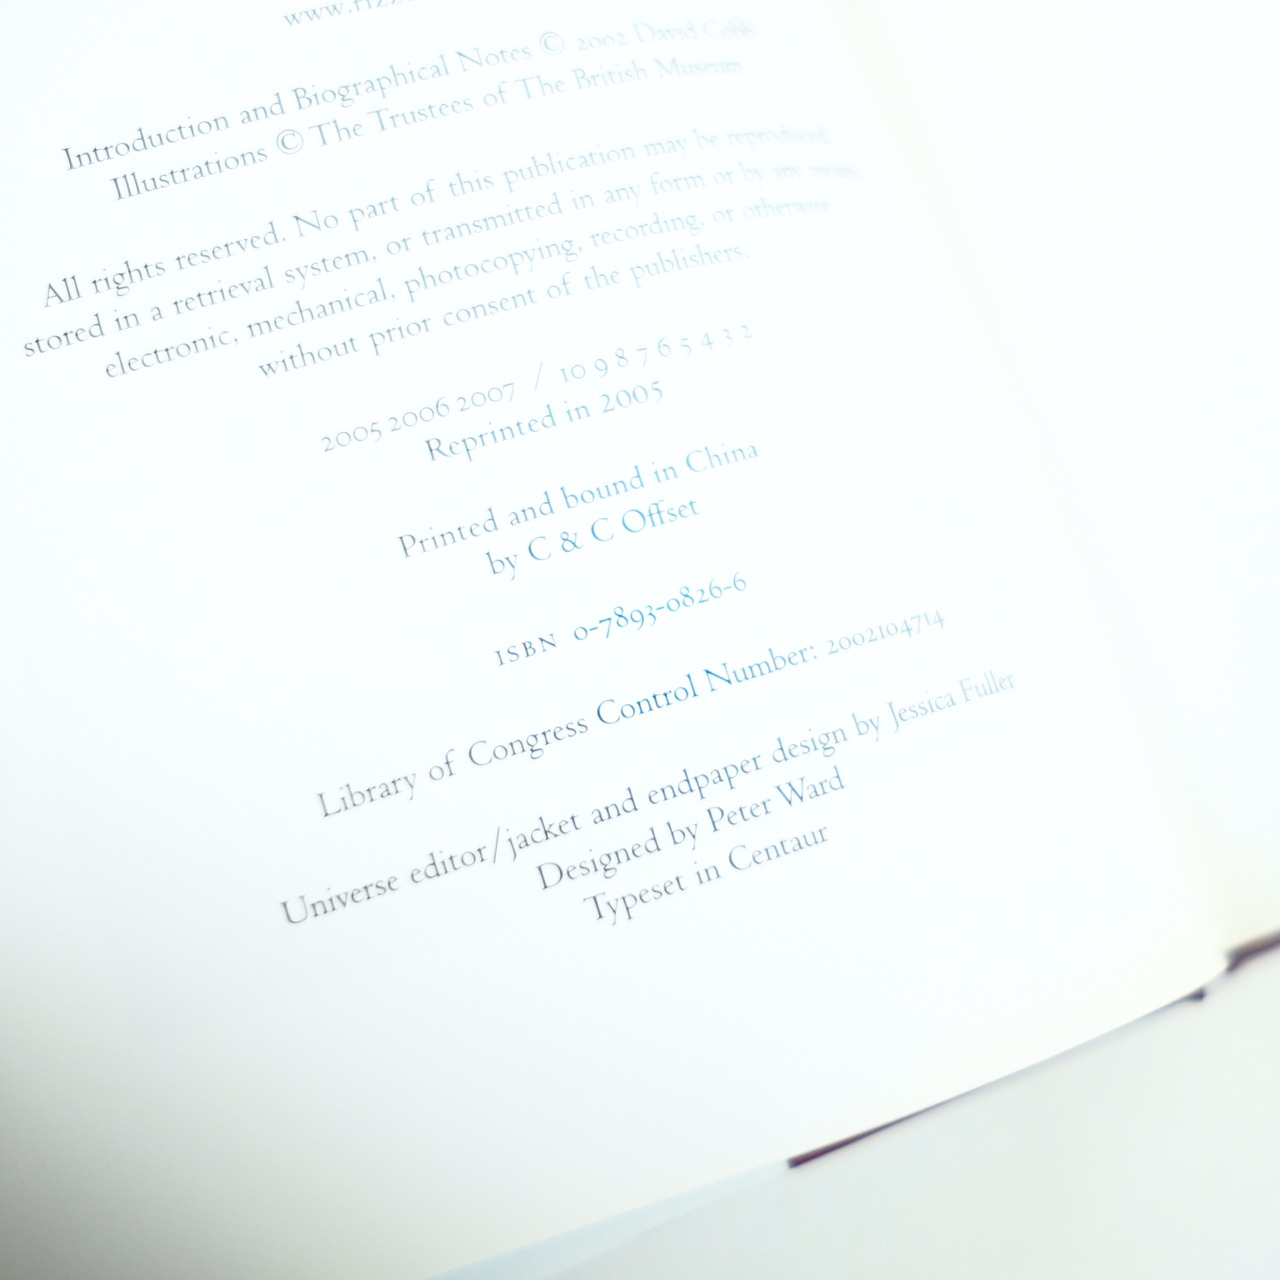 Introduction and Biographical Notes © 2002 David Cobb
Illustrations © The Trustees of The British Museum
All rights reserved. No part of this publication may be reproduced,
stored in a retrieval system, or transmitted in any form or by any means,
electronic, mechanical, photocopying, recording, or otherwise,
without prior consent of the publishers.
2005 2006 2007 / 10 9 8 7 6 5 4 3 2
Reprinted in 2005
Printed and bound in China
by C & C Offset
ISBN 0-7893-0826-6
Library of Congress Control Number: 2002104714
Universe editor/jacket and endpaper design by Jessica Fuller
Designed by Peter Ward
Typeset in Centaur